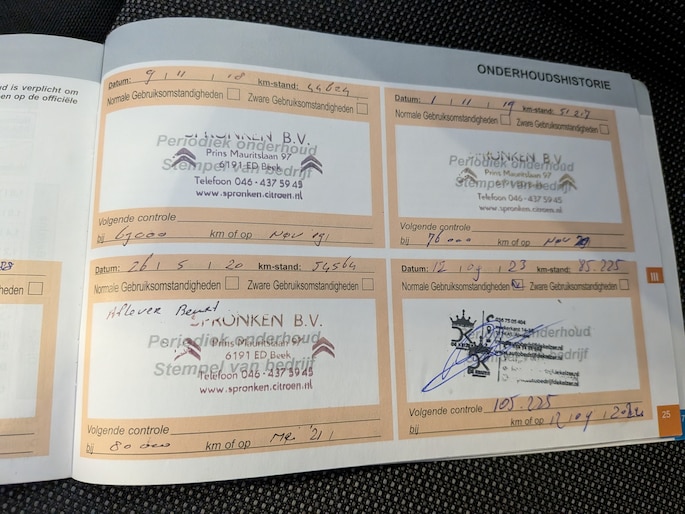 d is verplicht om
en op de officiële
heden
ONDERHOUDSHISTORIE
Datum: 9 11 18 km-stand: 44624
Normale Gebruiksomstandigheden Zware Gebruiksomstandigheden
SPRONKEN B.V.
Periodiek onderhoud
Prins Mauritslaan 97
6191 ED Beek
Stempel van bedrijf
Telefoon 046 - 437 59 45
www.spronken.citroen.nl
Volgende controle
bij km of op Nov 19
Datum: 1 11 19 km-stand: 51217
Normale Gebruiksomstandigheden Zware Gebruiksomstandigheden
SPRONKEN B.V.
Periodiek onderhoud
Prins Mauritslaan 97
Stempel van bedrijf
Telefoon 046 - 437 59 45
www.spronken.citroen.nl
Volgende controle
bij 76000 km of op Nov
Datum: 26 5 20 km-stand: 54564
Normale Gebruiksomstandigheden Zware Gebruiksomstandigheden
Aflever Beurt
SPRONKEN B.V.
Periodiek onderhoud
Prins Mauritslaan 97
6191 ED Beek
Stempel van bedrijf
Telefoon 046 - 437 59 45
www.spronken.citroen.nl
Volgende controle
bij 80 000 km of op Mei '21
Datum: 12 09 23 km-stand: 85.225
Normale Gebruiksomstandigheden Zware Gebruiksomstandigheden
onderhoud
bedrijf
Volgende controle 105.225
bij km of op 12 09
III
25